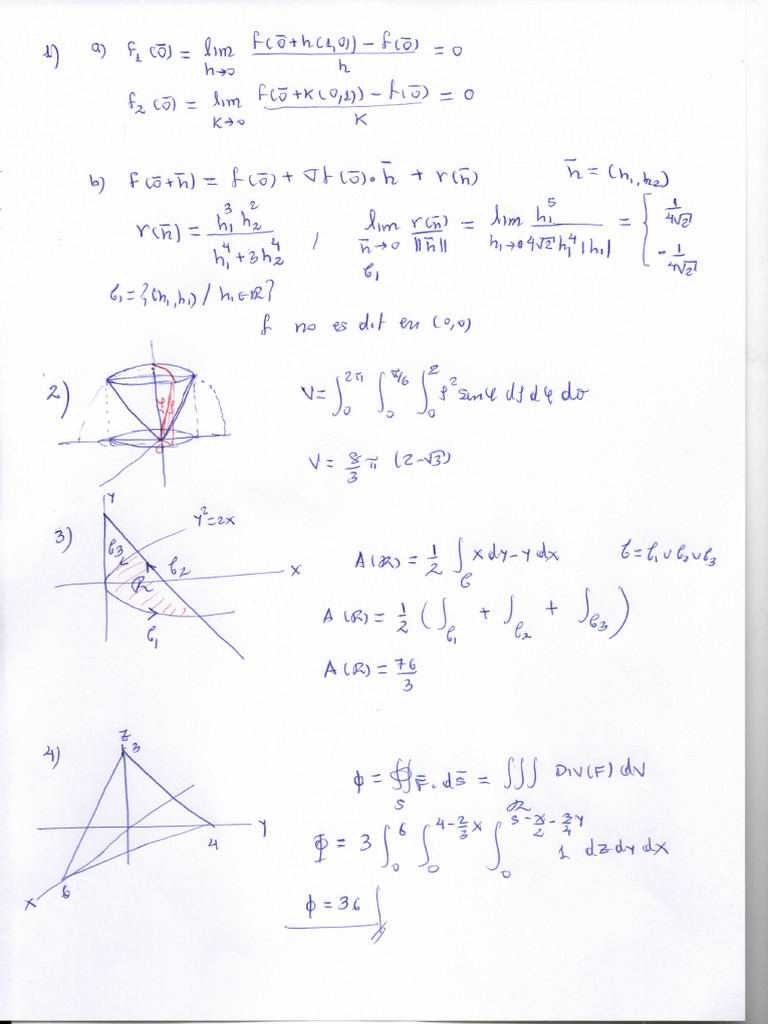 1) a) f₁(0̄) = lim h→0 (f(0̄+h(1,0)) − f(0̄))/h = 0
f₂(0̄) = lim k→0 (f(0̄+k(0,1)) − f(0̄))/k = 0
b) f(0̄+h̄) = f(0̄) + ∇f(0̄)·h̄ + r(h̄) h̄ = (h₁, h₂)
r(h̄) = h₁³ h₂²/(h₁⁴+3h₂⁴) , lim h̄→0 C₁ r(h̄)/||h̄|| = lim h₁→0 h₁⁵/(4√2 h₁⁴ |h₁|) = { 1/(4√2) -1/(4√2)
C₁ = {(h₁,h₁) / h₁∈R}
f no es dif en (0,0)
2) V = ∫₀^{2π} ∫₀^{π/6} ∫₀^{2} ρ² sin φ dρ dφ dθ
V = 8/3 π (2-√3)
3) Y
Y²=2X
C₃ C₂ X
R
C₁
A(R) = 1/2 ∫_C X dy − Y dx C = C₁ ∪ C₂ ∪ C₃
A(R) = 1/2 (∫_{C₁} + ∫_{C₂} + ∫_{C₃})
A(R) = 76/3
4) Z
3
Y
4
X 6
ϕ = ∯_S F̄ · ds̄ = ∭_R DIV(F) dV
Φ = 3 ∫₀^{6} ∫₀^{4−2/3 X} ∫₀^{3−X/2−3Y/4} 1 dz dy dx
ϕ = 36